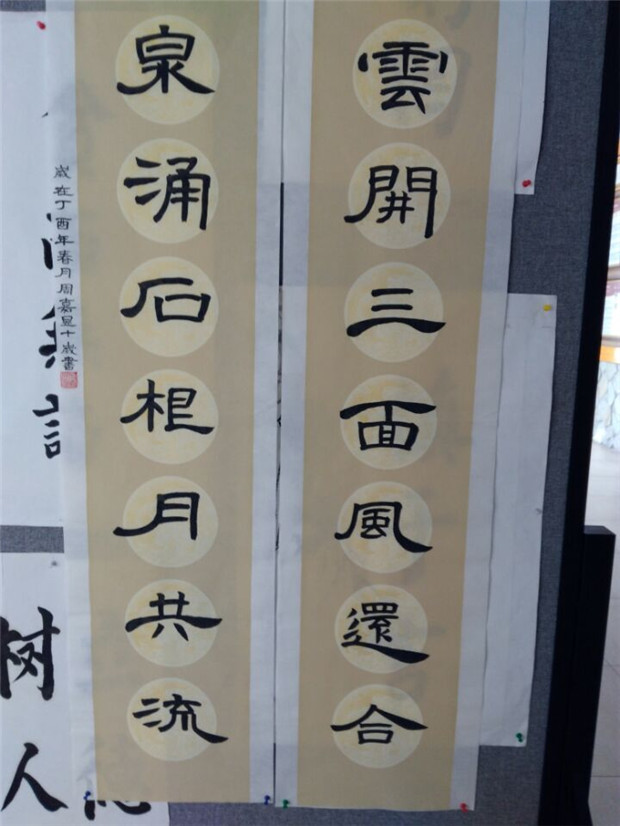 雲開三面風還合
泉涌石根月共流
歲在丁酉年春月周嘉昱十歲書
树人